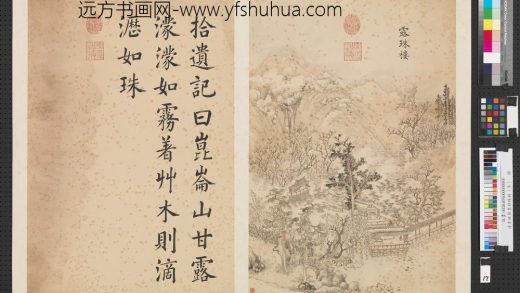 远方书画网-www.yfshuhua.com
拾遺記曰崑崙山甘露
濛濛如霧着艸木則滴
瀝如珠
露珠樓